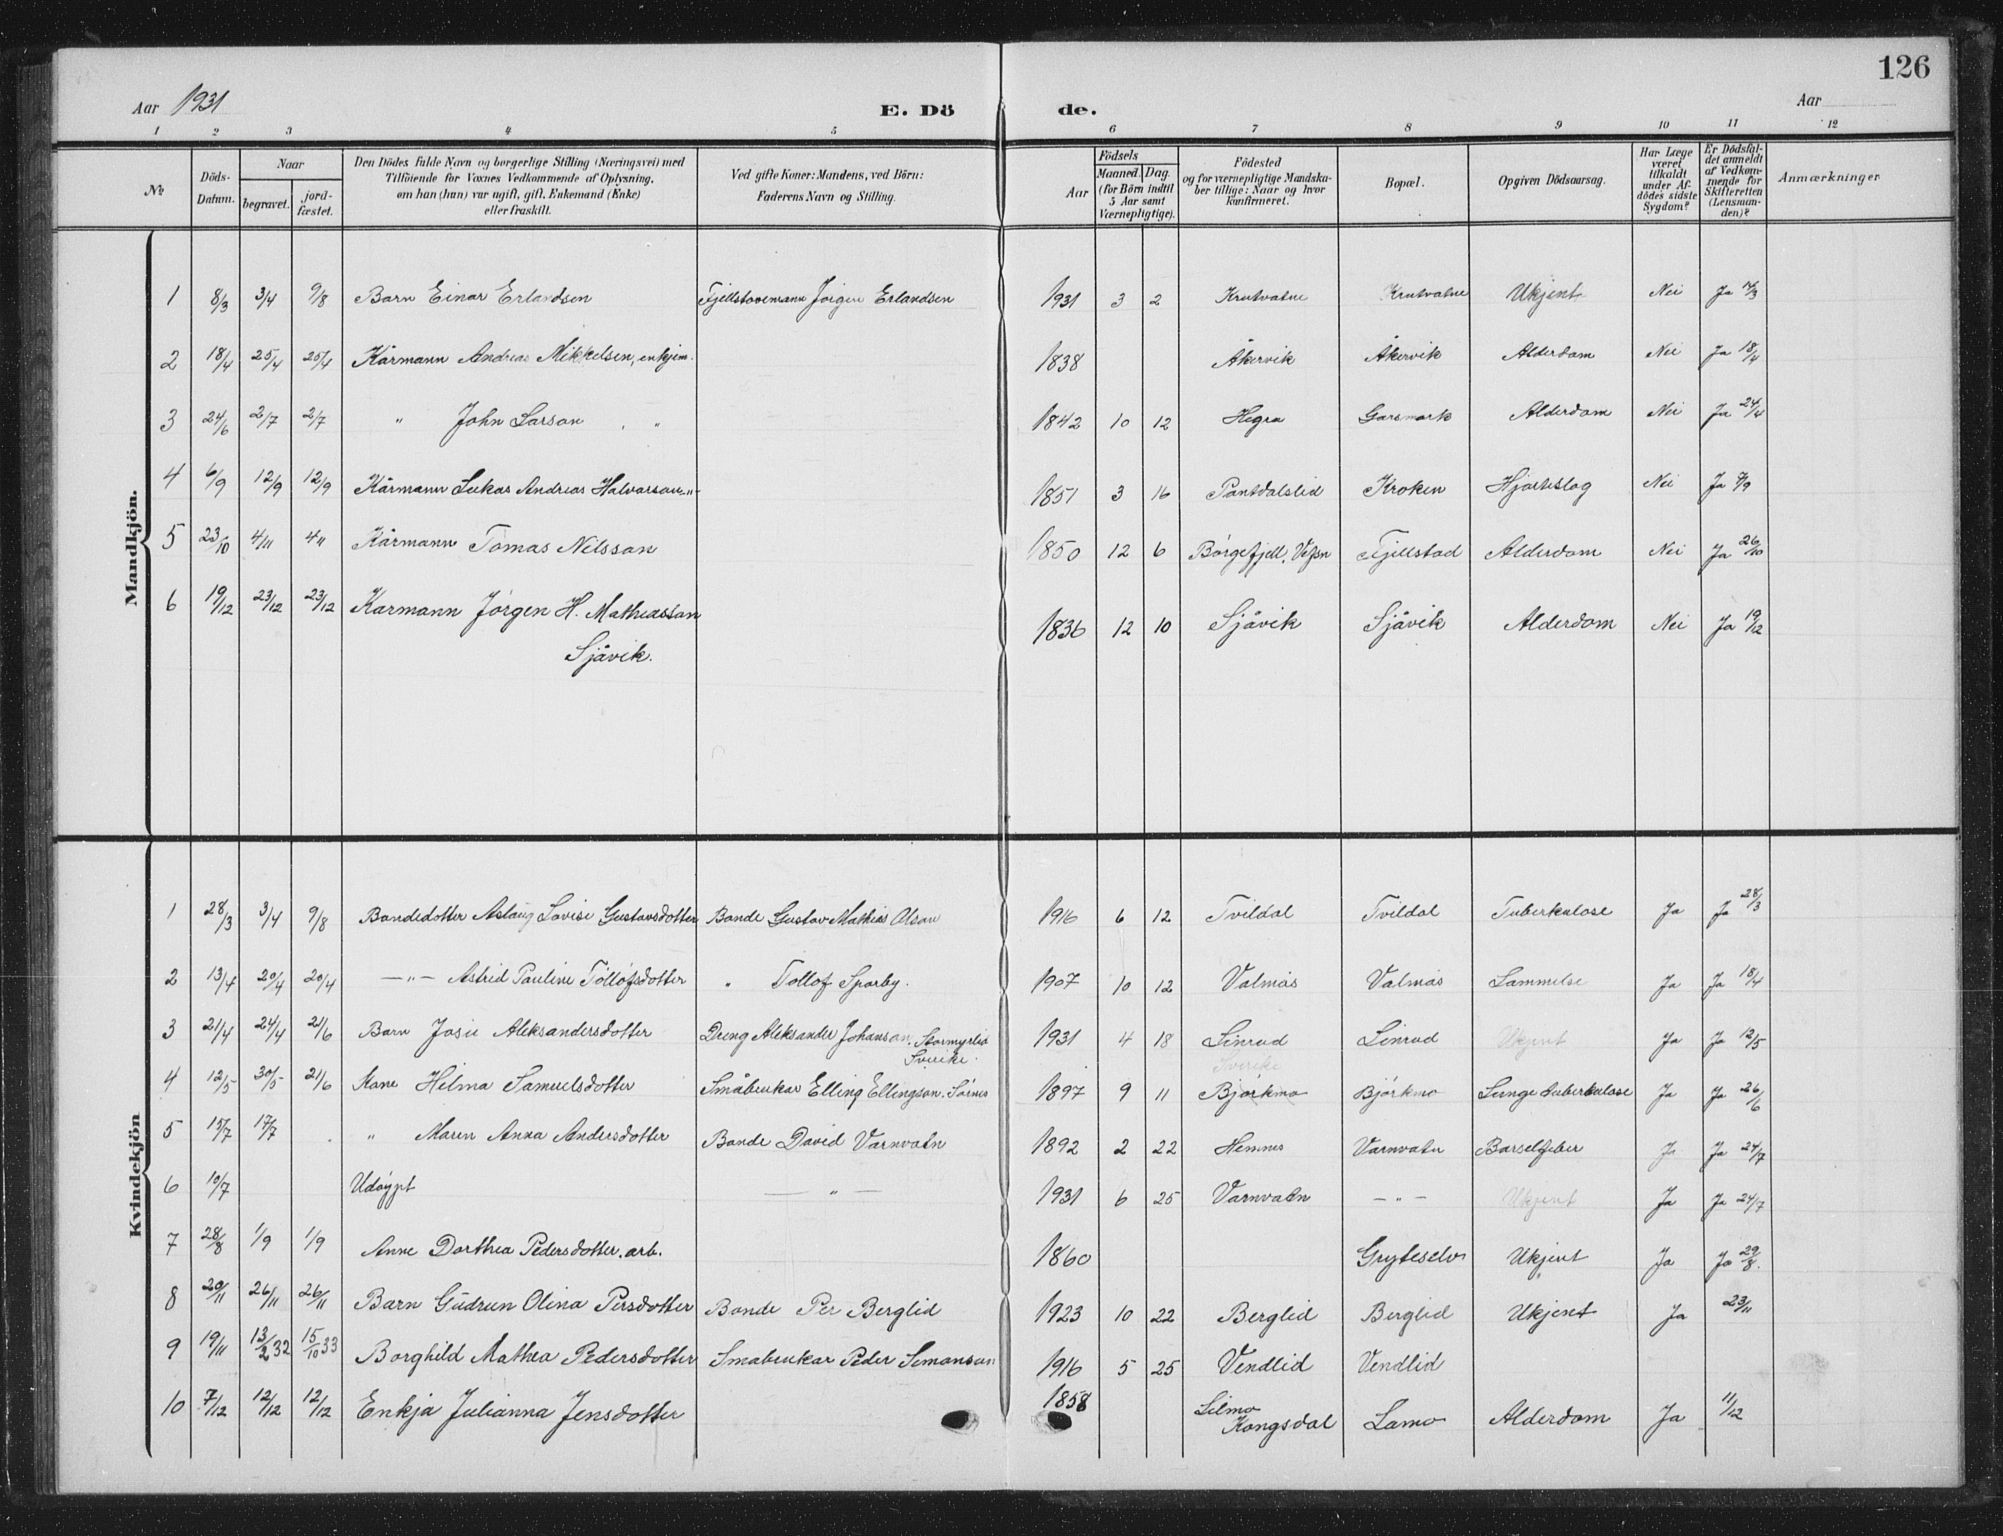 126
Aar 1931 E. Dö de. Aar
1 2 3 4 5 6 7 8 9 10 11 12
No
Döds-Datum.
Naar
begravet.
jord-fæstet.
Den Dödes fulde Navn og borgerlige Stilling (Næringsvei) med
Tilföiende for Voxnes Vedkommende af Oplysning,
om han (hun) var ugift, gift, Enkemand (Enke)
eller fraskilt.
Ved gifte Koner: Mandens, ved Börn:
Faderens Navn og Stilling.
Födsels
Aar
Maaned. Dag.
(for Börn indtil
5 Aar samt
Værnepligtige).
Födested
og for værnepligtige Mandska-
ber tillige: Naar og hvor
konfirmeret.
Bopæl.
Opgiven Dödsaarsag.
Har Læge
været
tilkaldt
under Af-
dödes sidste
Sygdom?
Er Dödsfal-
det anmeldt
af Vedkom-
mende for
Skifteretten
(Lensman-
den)?
Anmærkninger
Mandkjön.
1 8/3 3/4 9/8 Barn Einar Erlandsen Fjellstovemann Jørgen Erlandsen 1931 3 2 Krutvatne Krutvatne Ukjent Nei Ja 14/3
2 18/4 25/4 25/4 Kårmann Andreas Mikkelsen, enkjem. 1838 Åkervik Åkervik Alderdom Nei Ja 18/4
3 24/6 2/7 2/7 " John Larson " 1842 10 12 Hegra Garsmark Alderdom Nei Ja 24/4
4 6/9 12/9 12/9 Kårmann Lukas Andreas Halvorson -"- 1851 3 16 Pantdalslid Kroken Hjarteslag Nei Ja 7/9
5 23/10 4/11 4/11 Kårmann Tomas Nilsson 1850 12 6 Børgefjell, Vefsn Fjellstad Alderdom Nei Ja 26/10
6 19/12 23/12 23/12 Karmann Jørgen H. Mathiasson 1836 12 10 Sjåvik Sjåvik Alderdom Nei Ja 19/12
Sjåvik.
Kvindekjön
1 28/3 3/4 9/8 Bondedotter Aslaug Lovise Gustavsdotter Bonde Gustav Mathias Olson 1916 6 12 Tvildal Tvildal Tuberkulose Ja Ja 28/3
2 13/4 20/4 20/4 -"- Astrid Pauline Tollofsdotter " Tollof Sparby. 1907 10 12 Valmås Valmås Lammelse Ja Ja 18/4
3 21/4 24/4 21/6 Barn Josie Aleksandersdotter Dreng Aleksander Johanson, Stormyrlid 1931 4 18 Linrud Linrud Ukjent Ja Ja 12/5
Sverike. Sverike
4 12/5 30/5 21/6 Kone Hilma Samuelsdotter Småbrukar Elling Ellingson. Sørnes 1897 9 11 Bjørkmo Bjørkmo Lunge Tuberkulose Ja Ja 26/6
5 15/7 17/7 " Maren Anna Andersdotter Bonde David Varnvatn 1892 2 22 Hemnes Varnvatn Barselfeber Ja Ja 24/7
6 10/7 Udøypt -"- 1931 6 25 Varnvatn -"- Ukjent Ja Ja 24/7
7 28/8 1/9 1/9 Anne Dorthea Pedersdotter. arb. 1860 Gryteselv Ukjent Ja Ja 29/8.
8 20/11 26/11 26/11 Barn Gudrun Olina Persdotter Bonde Per Berglid 1923 10 22 Berglid Berglid Ukjent Ja 23/11
9 19/11 13/2 32 15/10 33 Borghild Mathea Pedersdotter Småbrukar Peder Simonson 1916 5 25 Vendlid Vendlid
10 7/12 12/12 12/12 Enkja Julianna Jensdotter 1858 Lilmo Kongsdal Lamo Alderdom Ja 11/12